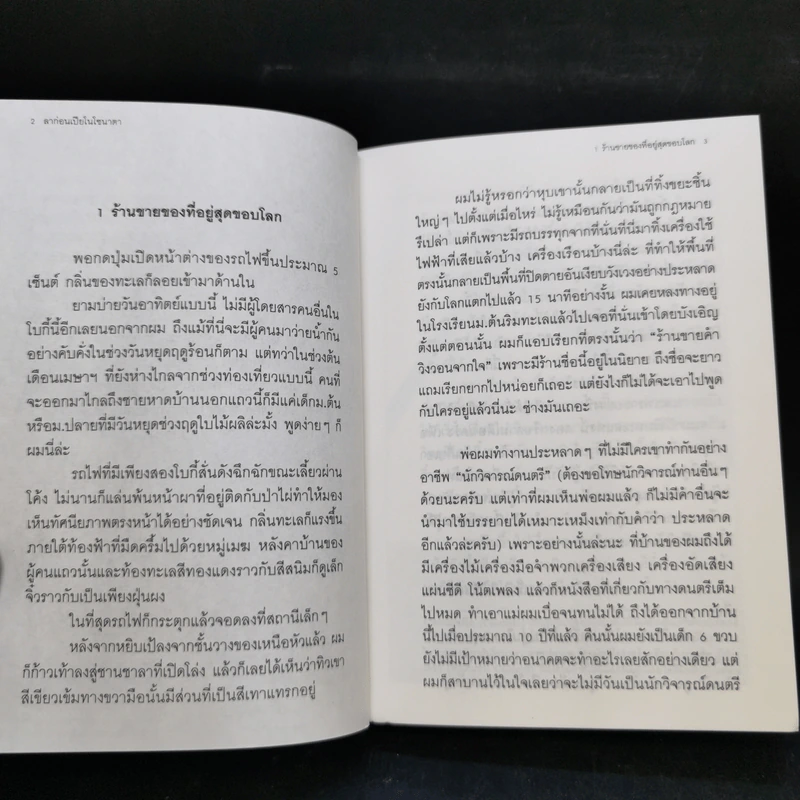 2 ลาก่อนเปียโนโซนาตา
1 ร้านขายของที่อยู่สุดขอบโลก
พอกดปุ่มเปิดหน้าต่างของรถไฟขึ้นประมาณ 5
เซ็นต์ กลิ่นของทะเลก็ลอยเข้ามาด้านใน
ยามบ่ายวันอาทิตย์แบบนี้ ไม่มีผู้โดยสารคนอื่นใน
โบกี้นี้อีกเลยนอกจากผม ถึงแม้ที่นี่จะมีผู้คนมาว่ายน้ำกัน
อย่างคับคั่งในช่วงวันหยุดฤดูร้อนก็ตาม แต่ทว่าในช่วงต้น
เดือนเมษาฯ ที่ยังห่างไกลจากช่วงท่องเที่ยวแบบนี้ คนที่
จะออกมาไกลถึงชายหาดบ้านนอกแถวนี้ก็มีแค่เด็กม.ต้น
หรือม.ปลายที่มีวันหยุดช่วงฤดูใบไม้ผลิล่ะมั้ง พูดง่ายๆ ก็
ผมนี่ล่ะ
รถไฟที่มีเพียงสองโบกี้สั่นดังฉึกฉักขณะเลี้ยวผ่าน
โค้ง ไม่นานก็แล่นพ้นหน้าผาที่อยู่ติดกับป่าไผ่ทำให้มอง
เห็นทัศนียภาพตรงหน้าได้อย่างชัดเจน กลิ่นทะเลก็แรงขึ้น
ภายใต้ท้องฟ้าที่มืดครึ้มไปด้วยหมู่เมฆ หลังคาบ้านของ
ผู้คนแถวนั้นและท้องทะเลสีทองแดงราวกับสีสนิมก็ดูเล็ก
จิ๋วราวกับเป็นเพียงฝุ่นผง
ในที่สุดรถไฟก็กระตุกแล้วจอดลงที่สถานีเล็กๆ
หลังจากหยิบเป้ลงจากชั้นวางของเหนือหัวแล้ว ผม
ก็ก้าวเท้าลงสู่ชานชาลาที่เปิดโล่ง แล้วก็เลยได้เห็นว่าทิวเขา
สีเขียวเข้มทางขวามือนั้นมีส่วนที่เป็นสีเทาแทรกอยู่
1 ร้านขายของที่อยู่สุดขอบโลก 3
ผมไม่รู้หรอกว่าหุบเขานั้นกลายเป็นที่ทิ้งขยะชิ้น
ใหญ่ๆ ไปตั้งแต่เมื่อไหร่ ไม่รู้เหมือนกันว่ามันถูกกฎหมาย
รึเปล่า แต่ก็เพราะมีรถบรรทุกจากที่นั่นที่นี่มาทิ้งเครื่องใช้
ไฟฟ้าที่เสียแล้วบ้าง เครื่องเรือนบ้างนี่ล่ะ ที่ทำให้พื้นที่
ตรงนั้นกลายเป็นพื้นที่ปิดตายอันเงียบวังเวงอย่างประหลาด
ยังกับโลกแตกไปแล้ว 15 นาทีอย่างงั้น ผมเคยหลงทางอยู่
ในโรงเรียนม.ต้นริมทะเลแล้วไปเจอที่นั่นเข้าโดยบังเอิญ
ตั้งแต่ตอนนั้น ผมก็แอบเรียกที่ตรงนั้นว่า “ร้านขายคำ
วิงวอนจากใจ” เพราะมีร้านชื่อนี้อยู่ในนิยาย ถึงชื่อจะยาว
แถมเรียกยากไปหน่อยก็เถอะ แต่ยังไงก็ไม่ได้จะเอาไปพูด
กับใครอยู่แล้วนี่นะ ช่างมันเถอะ
พ่อผมทำงานประหลาดๆ ที่ไม่มีใครเขาทำกันอย่าง
อาชีพ “นักวิจารณ์ดนตรี” (ต้องขอโทษนักวิจารณ์ท่านอื่นๆ
ด้วยนะครับ แต่เท่าที่ผมเห็นพ่อผมแล้ว ก็ไม่มีคำอื่นจะ
นำมาใช้บรรยายได้เหมาะเหม็งเท่ากับคำว่า ประหลาด
อีกแล้วล่ะครับ) เพราะอย่างนั้นล่ะนะ ที่บ้านของผมถึงได้
มีเครื่องไม้เครื่องมือจำพวกเครื่องเสียง เครื่องอัดเสียง
แผ่นซีดี โน้ตเพลง แล้วก็หนังสือที่เกี่ยวกับทางดนตรีเต็ม
ไปหมด ทำเอาแม่ผมเบื่อจนทนไม่ได้ ถึงได้ออกจากบ้าน
นี้ไปเมื่อประมาณ 10 ปีที่แล้ว คืนนั้นผมยังเป็นเด็ก 6 ขวบ
ยังไม่มีเป้าหมายว่าอนาคตจะทำอะไรเลยสักอย่างเดียว แต่
ผมก็สาบานไว้ในใจเลยว่าจะไม่มีวันเป็นนักวิจารณ์ดนตรี